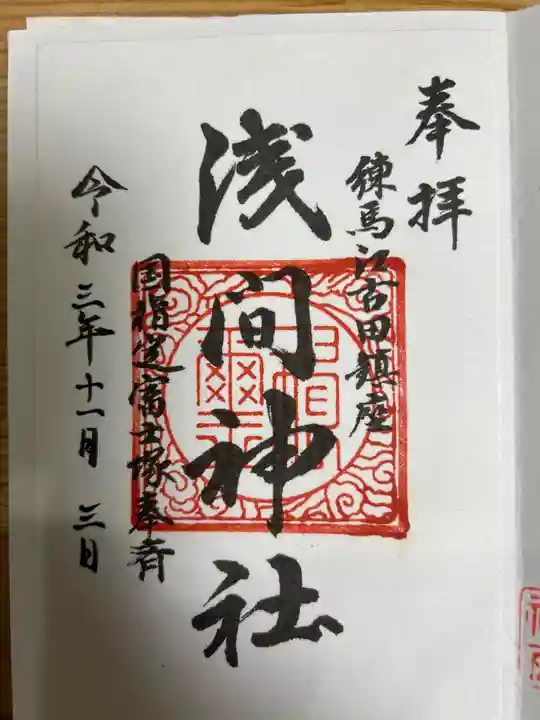 奉拝
練馬江古田鎮座
浅間神社
国指定富士塚奉斉
令和三年十一月三日